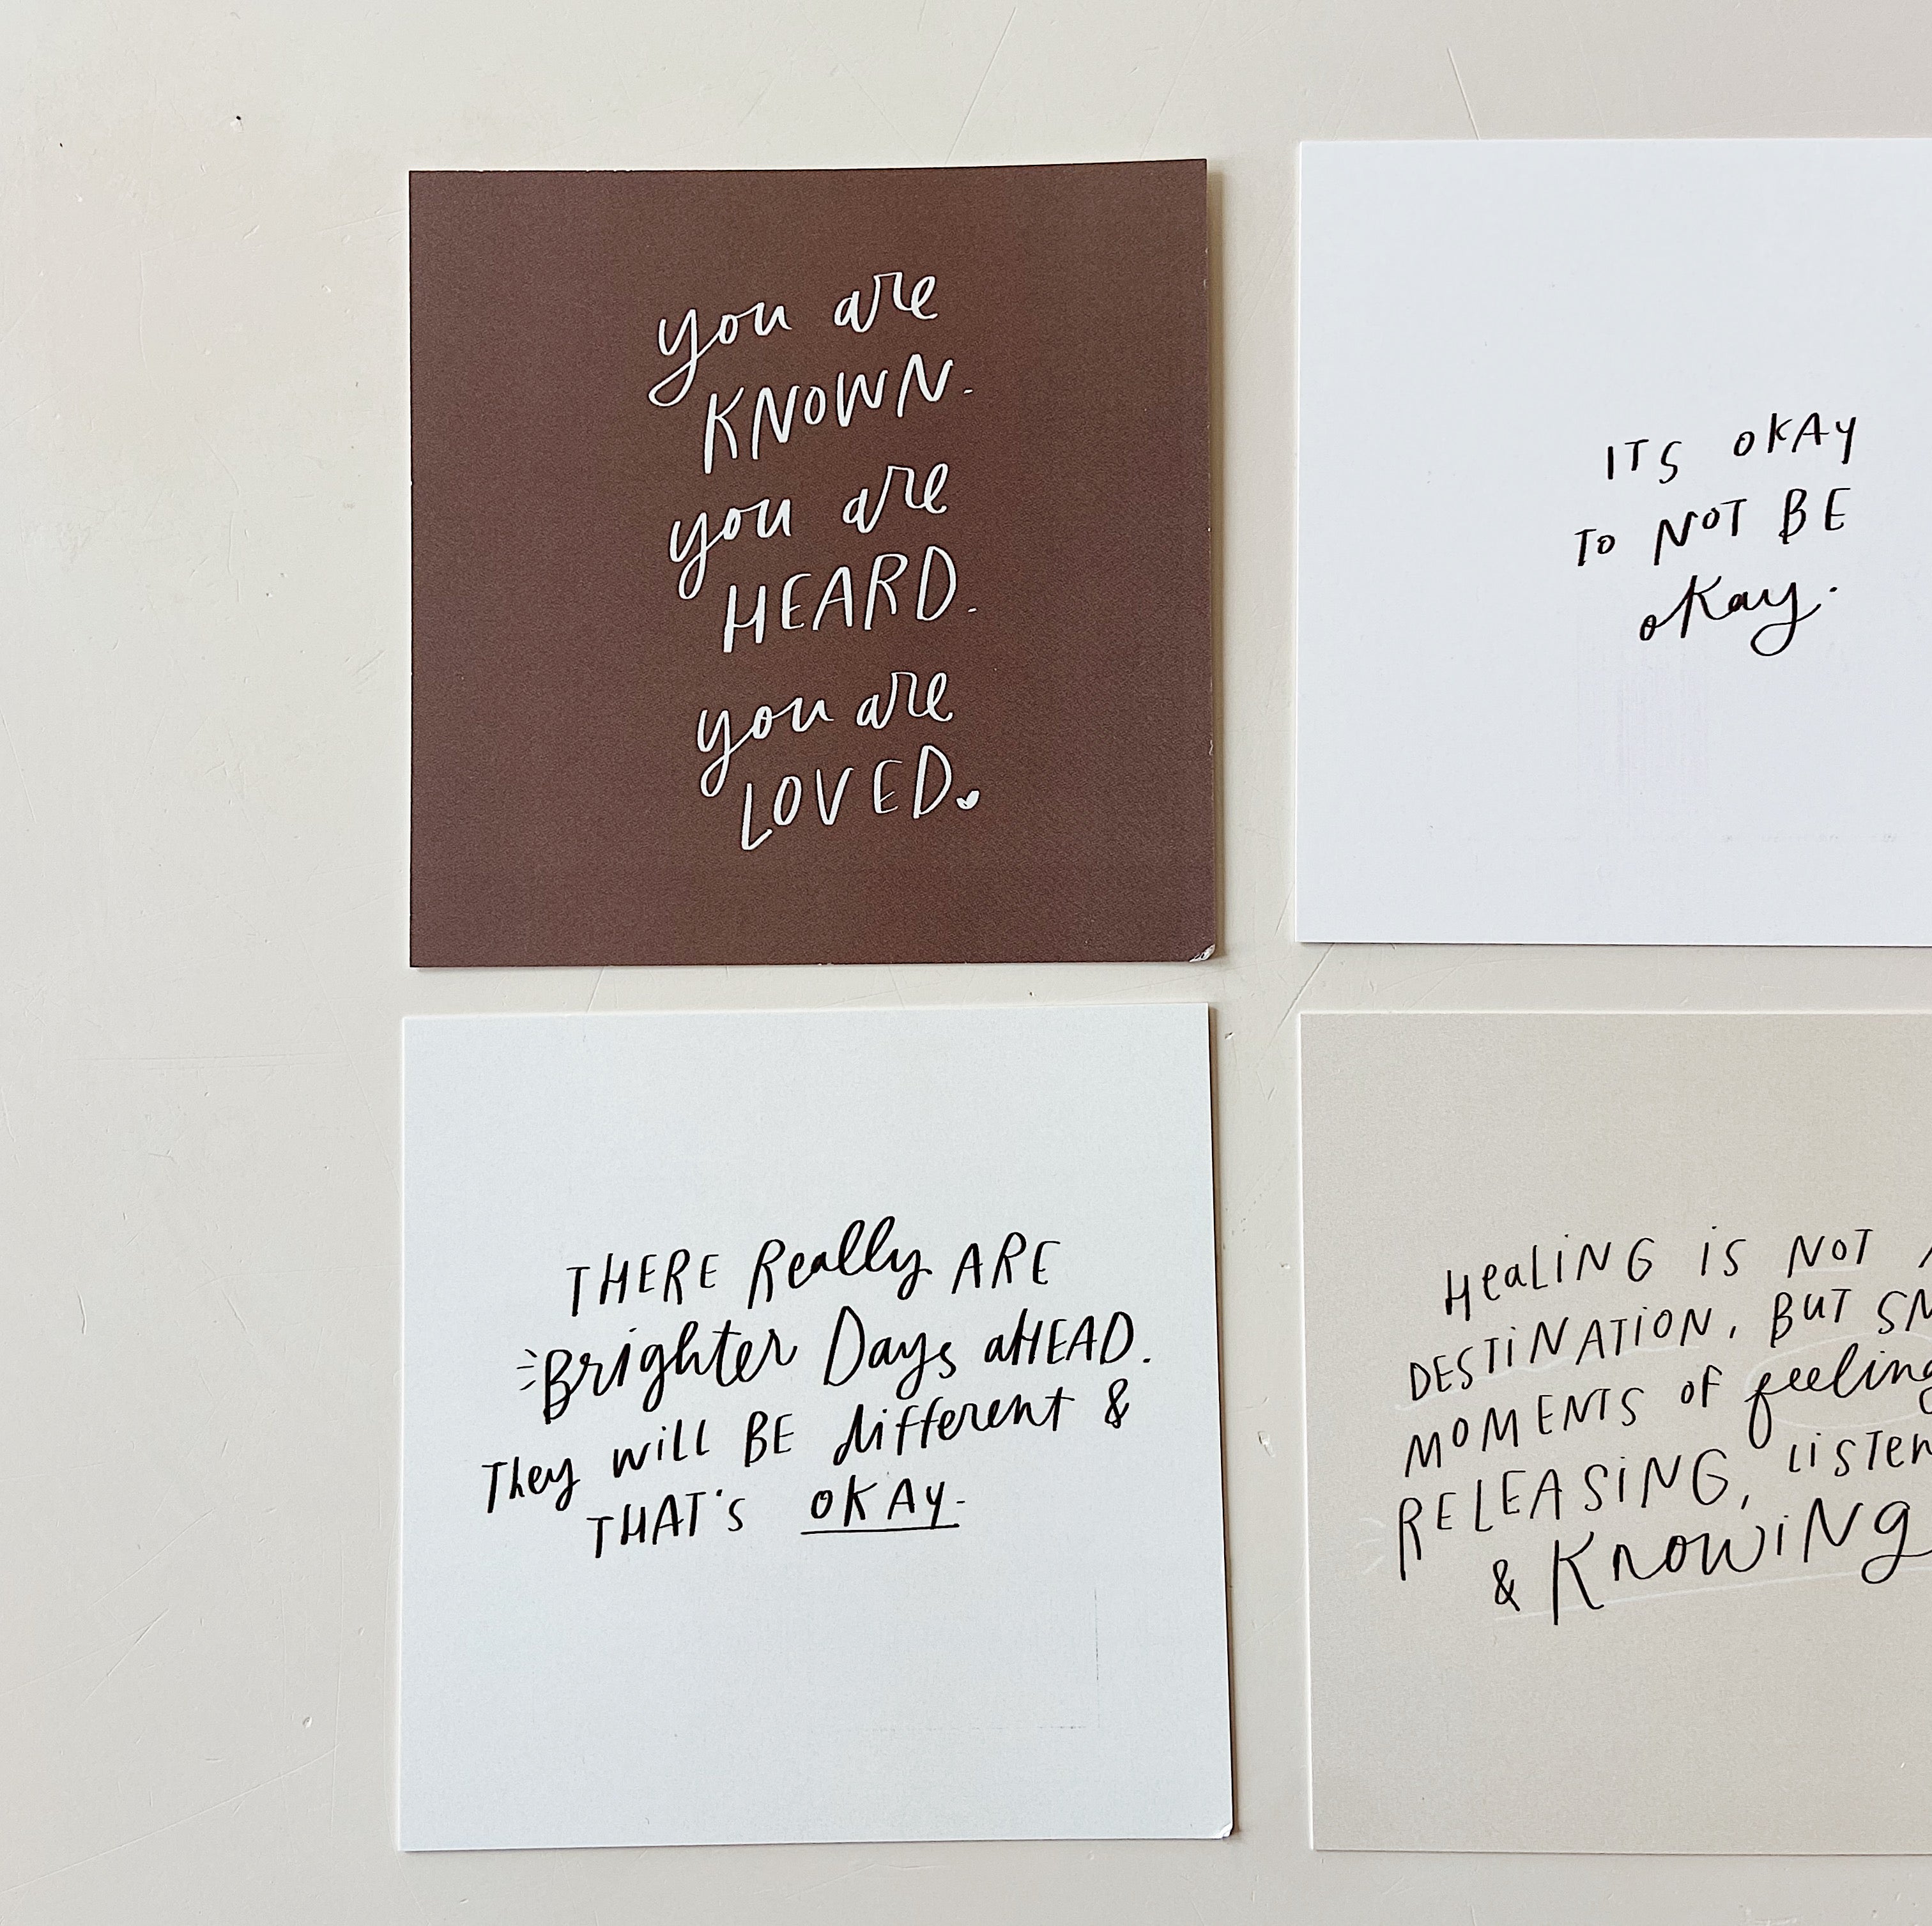 you are
KNOWN.
you are
HEARD.
you are
LOVED.
ITS OKAY
TO NOT BE
okay.
THERE Really ARE
Brighter Days aHEAD.
They will BE different &
THAT'S OKAY.
HeaLiNG iS NOT
DESTiNATiON, BUT
MOMENTS OF feeling
RELEASiNG,
& KnowiNg